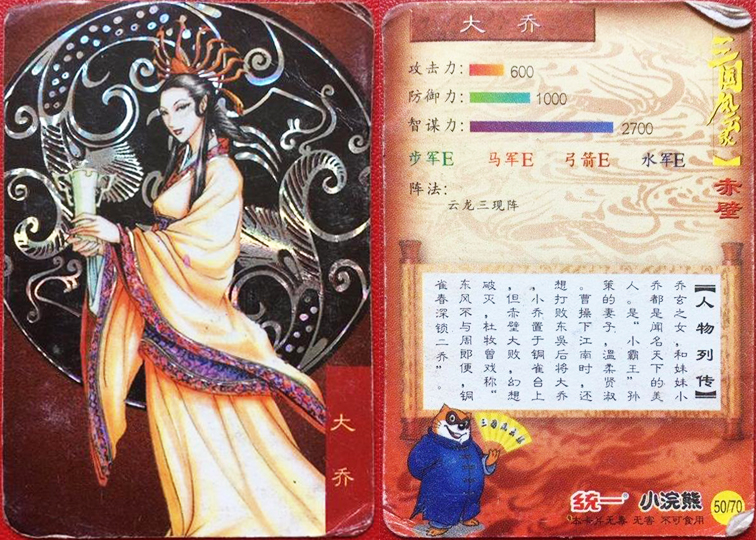 大乔
大乔
攻击力: 600
防御力: 1000
智谋力: 2700
步军E 马军E 弓箭E 水军E
阵法:
云龙三现阵
三国风云
赤壁
【人物列传】
乔玄之女，和妹妹小
乔都是闻名天下的美
人。是“小霸王”孙
策的妻子，温柔贤淑
。曹操下江南时，还
想打败东吳后将大乔
，小乔置于铜雀台上
，但赤壁大败，幻想
破灭，杜牧曾戏称“
东风不与周郎便，铜
雀春深锁二乔”。
统一® 小浣熊
本卡片无毒 无害 不可食用
50/70